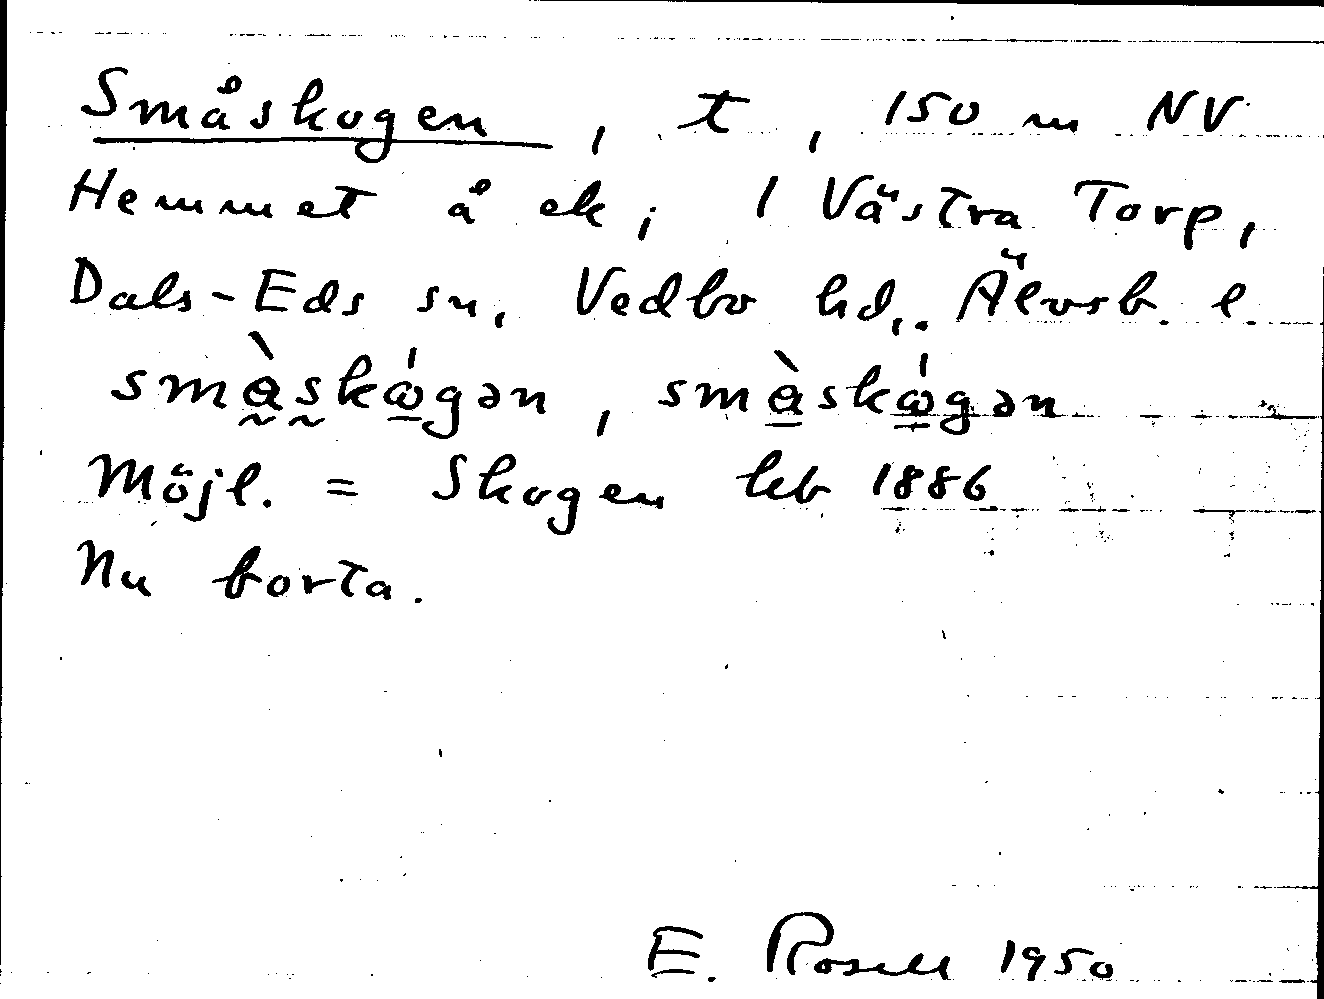 Småskogen, t, 150 m NV
Hemmet å ek; 1 Västra Torp,
Dals-Eds sn, Vedbo hd, Älvsb. l.
smàskógən, smàskógən
Möjl. = Skogen keb 1886
Nu borta.
E. Rosell 1950